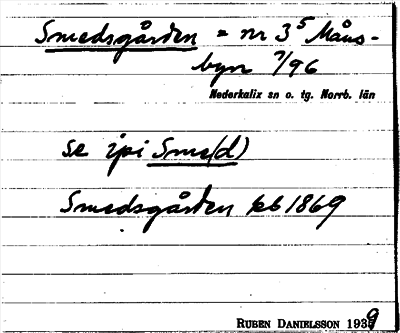 Smedsgården = nr 3⁵ Måns-
byn 7/96
Nederkalix sn o. tg. Norrb. län
se ipi Sme(d)
Smedsgården kb 1869
RUBEN DANIELSSON 1939